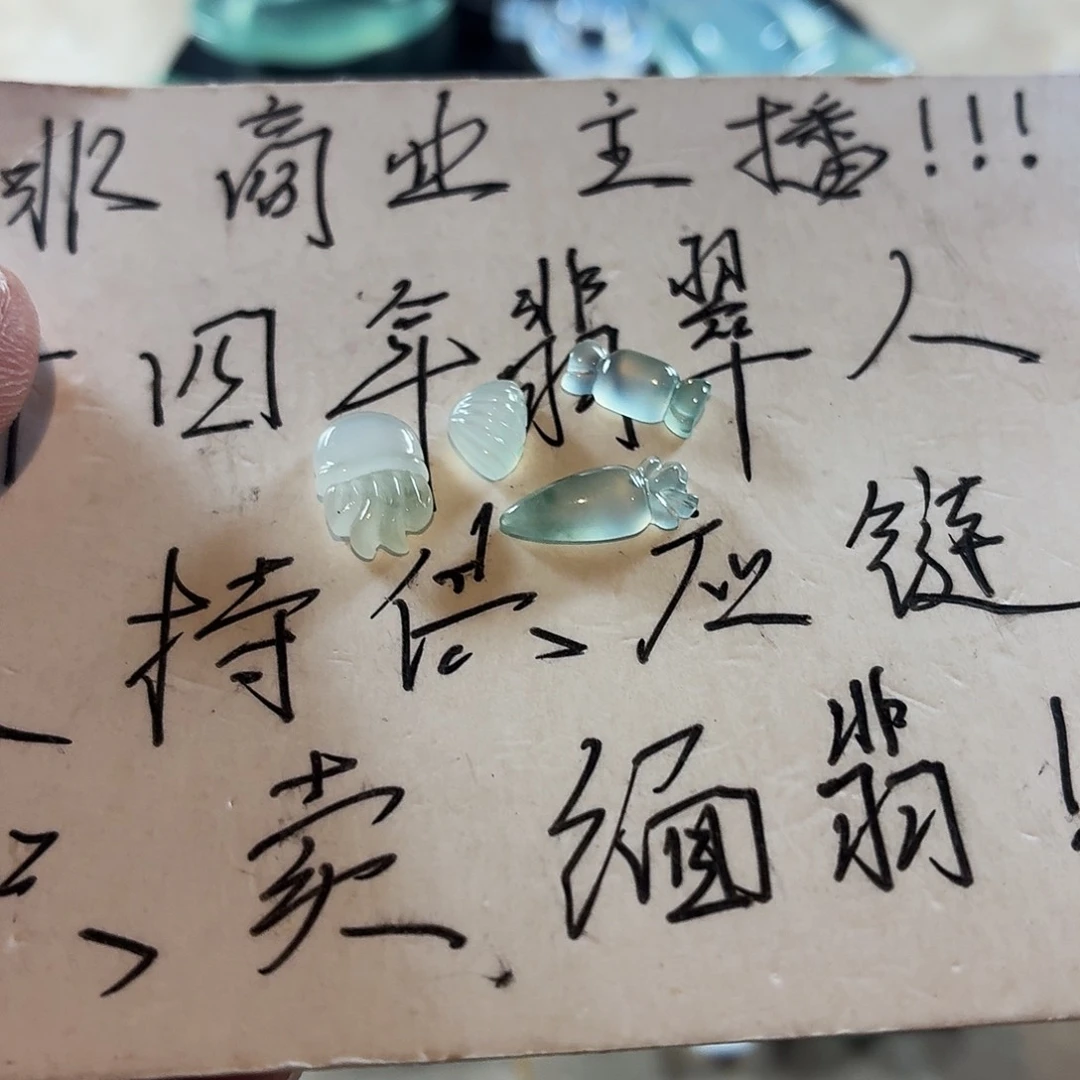 非商业主播!!!
十四年翡翠人
持供应链
卖缅翡!